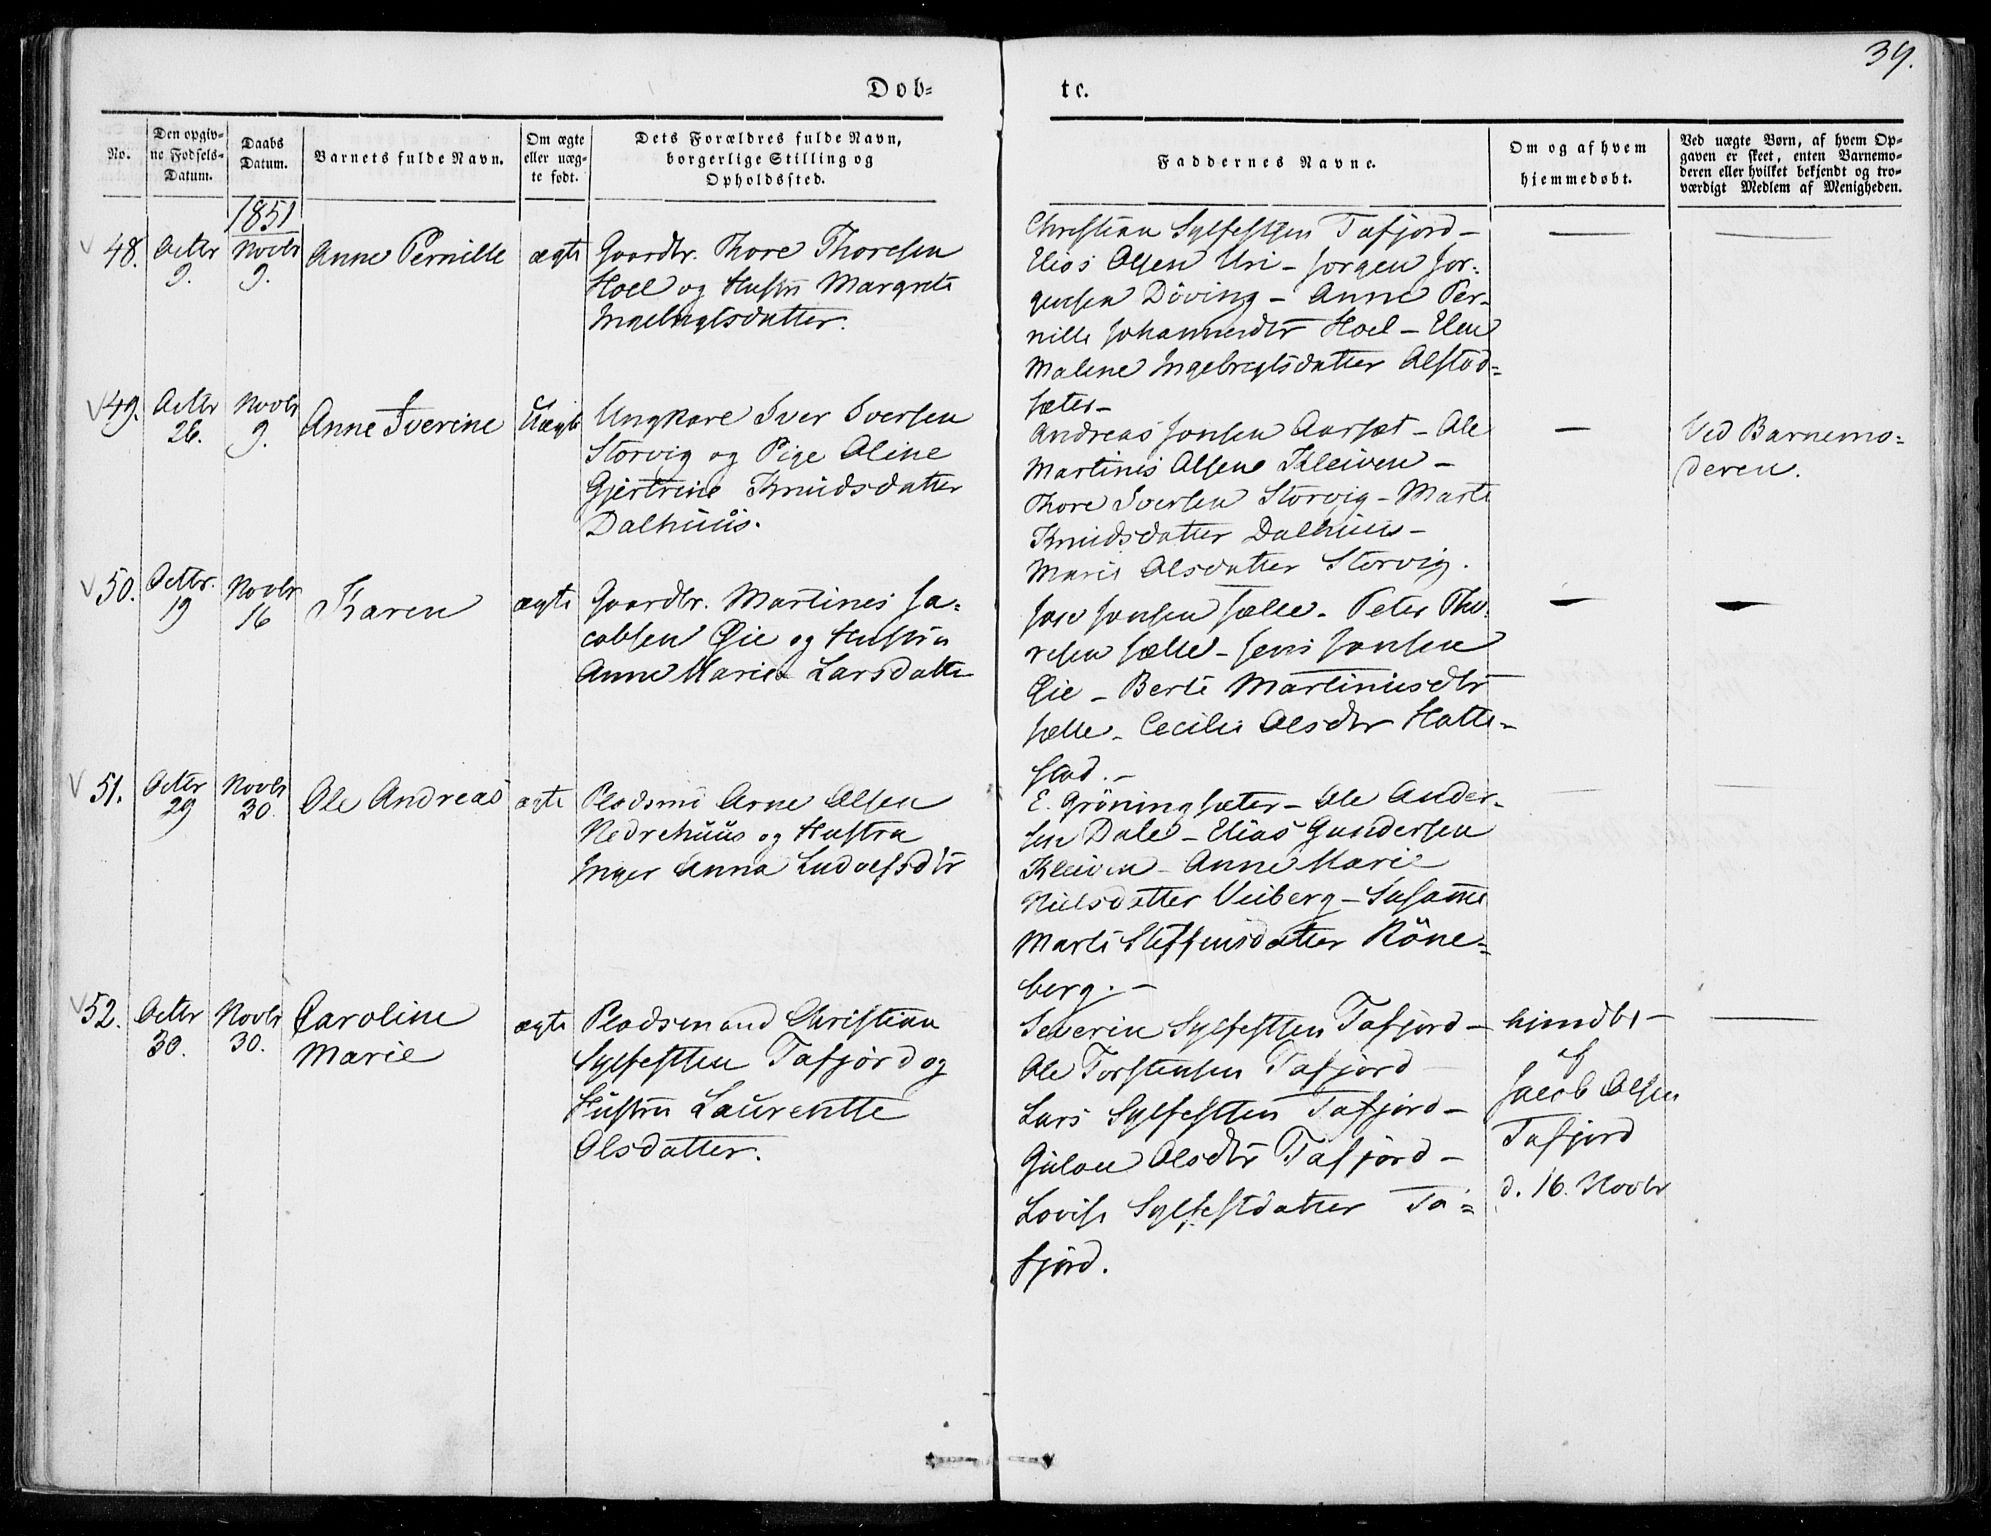 39.
Døb-
te.
No.
Den opgiv-
ne Fødsels-
Datum.
Daabs
Datum.
Barnets fulde Navn.
Om ægte
eller uæg-
te født.
Dets Forældres fulde Navn,
borgerlige Stilling og
Opholdssted.
Faddernes Navne.
Om og af hvem
hjemmedøbt.
Ved uægte Børn, af hvem Op-
gaven er skeet, enten Barnemo-
deren eller hvilket bekjendt og tro-
værdigt Medlem af Menigheden.
1851
48.
Octbr
9.
Novbr
9.
Anne Pernille
ægte
Gaardbr. Thore Thoresen
Hoel og Hustru Margrete
Ingebrigtsdatter.
Christian Sylfestsen Tafjord -
Elias Olsen Uri - Jørgen Jør-
gensen Døving - Anne Per-
nille Johannesdtr Hoel - Elen
Malene Ingebregtsdatter Alstad-
sæter -
49.
Octbr
26.
Novbr
9.
Anne Iverine
Uægte
Ungkarl Iver Iversen
Storvig og Pige Oline
Gjertrine Knudsdatter
Dalhuus.
Andreas Jonsen Aarset - Ole
Martinus Olsen Kleiven -
Thore Iversen Storvig - Marte
Knudsdatter Dalhuus -
Marie Olsdatter Storvig.
Ved Barnemo-
deren.
50.
Octbr.
19
Novbr
16
Karen
ægte
Gaardbr. Martines Ja-
cobsen Øie og Hustru
Anne Marie Larsdatter
Jonsen Sælle - Peter Tho-
resen Sælle - Jens Jonsen
Øie - Berte Martinusdtr
Sælle - Cecilie Olsdtr Hatte-
stad. -
51.
Octbr
29
Novbr
30.
Ole Andreas
ægte
Pladsmd Arne Olsen
Nedrehuus og Hustru
Inger Anna Ludvigsdtr
E. Grøningsæter - Ole Ander-
sen Dale - Elias Gundersen
Kleiven - Anne Marie
Nielsdatter Veiberg - Susanne
Marte Steffensdatter Røne-
berg. -
52.
Octbr
30.
Novbr
30.
Caroline
Marie
ægte
Pladsmand Christian
Sylfestsen Tafjord og
Hustru Laurentse
Olsdatter.
Severin Sylfestsen Tafjord -
Ole Torstensen Tafjord
Lars Sylfestsen Tafjord -
Gulou Olsdtr Tafjord -
Lovise Sylfestdatter Ta-
fjord.
hjmdbt
af
Jacob Olsen
Tafjord
d. 16. Novbr